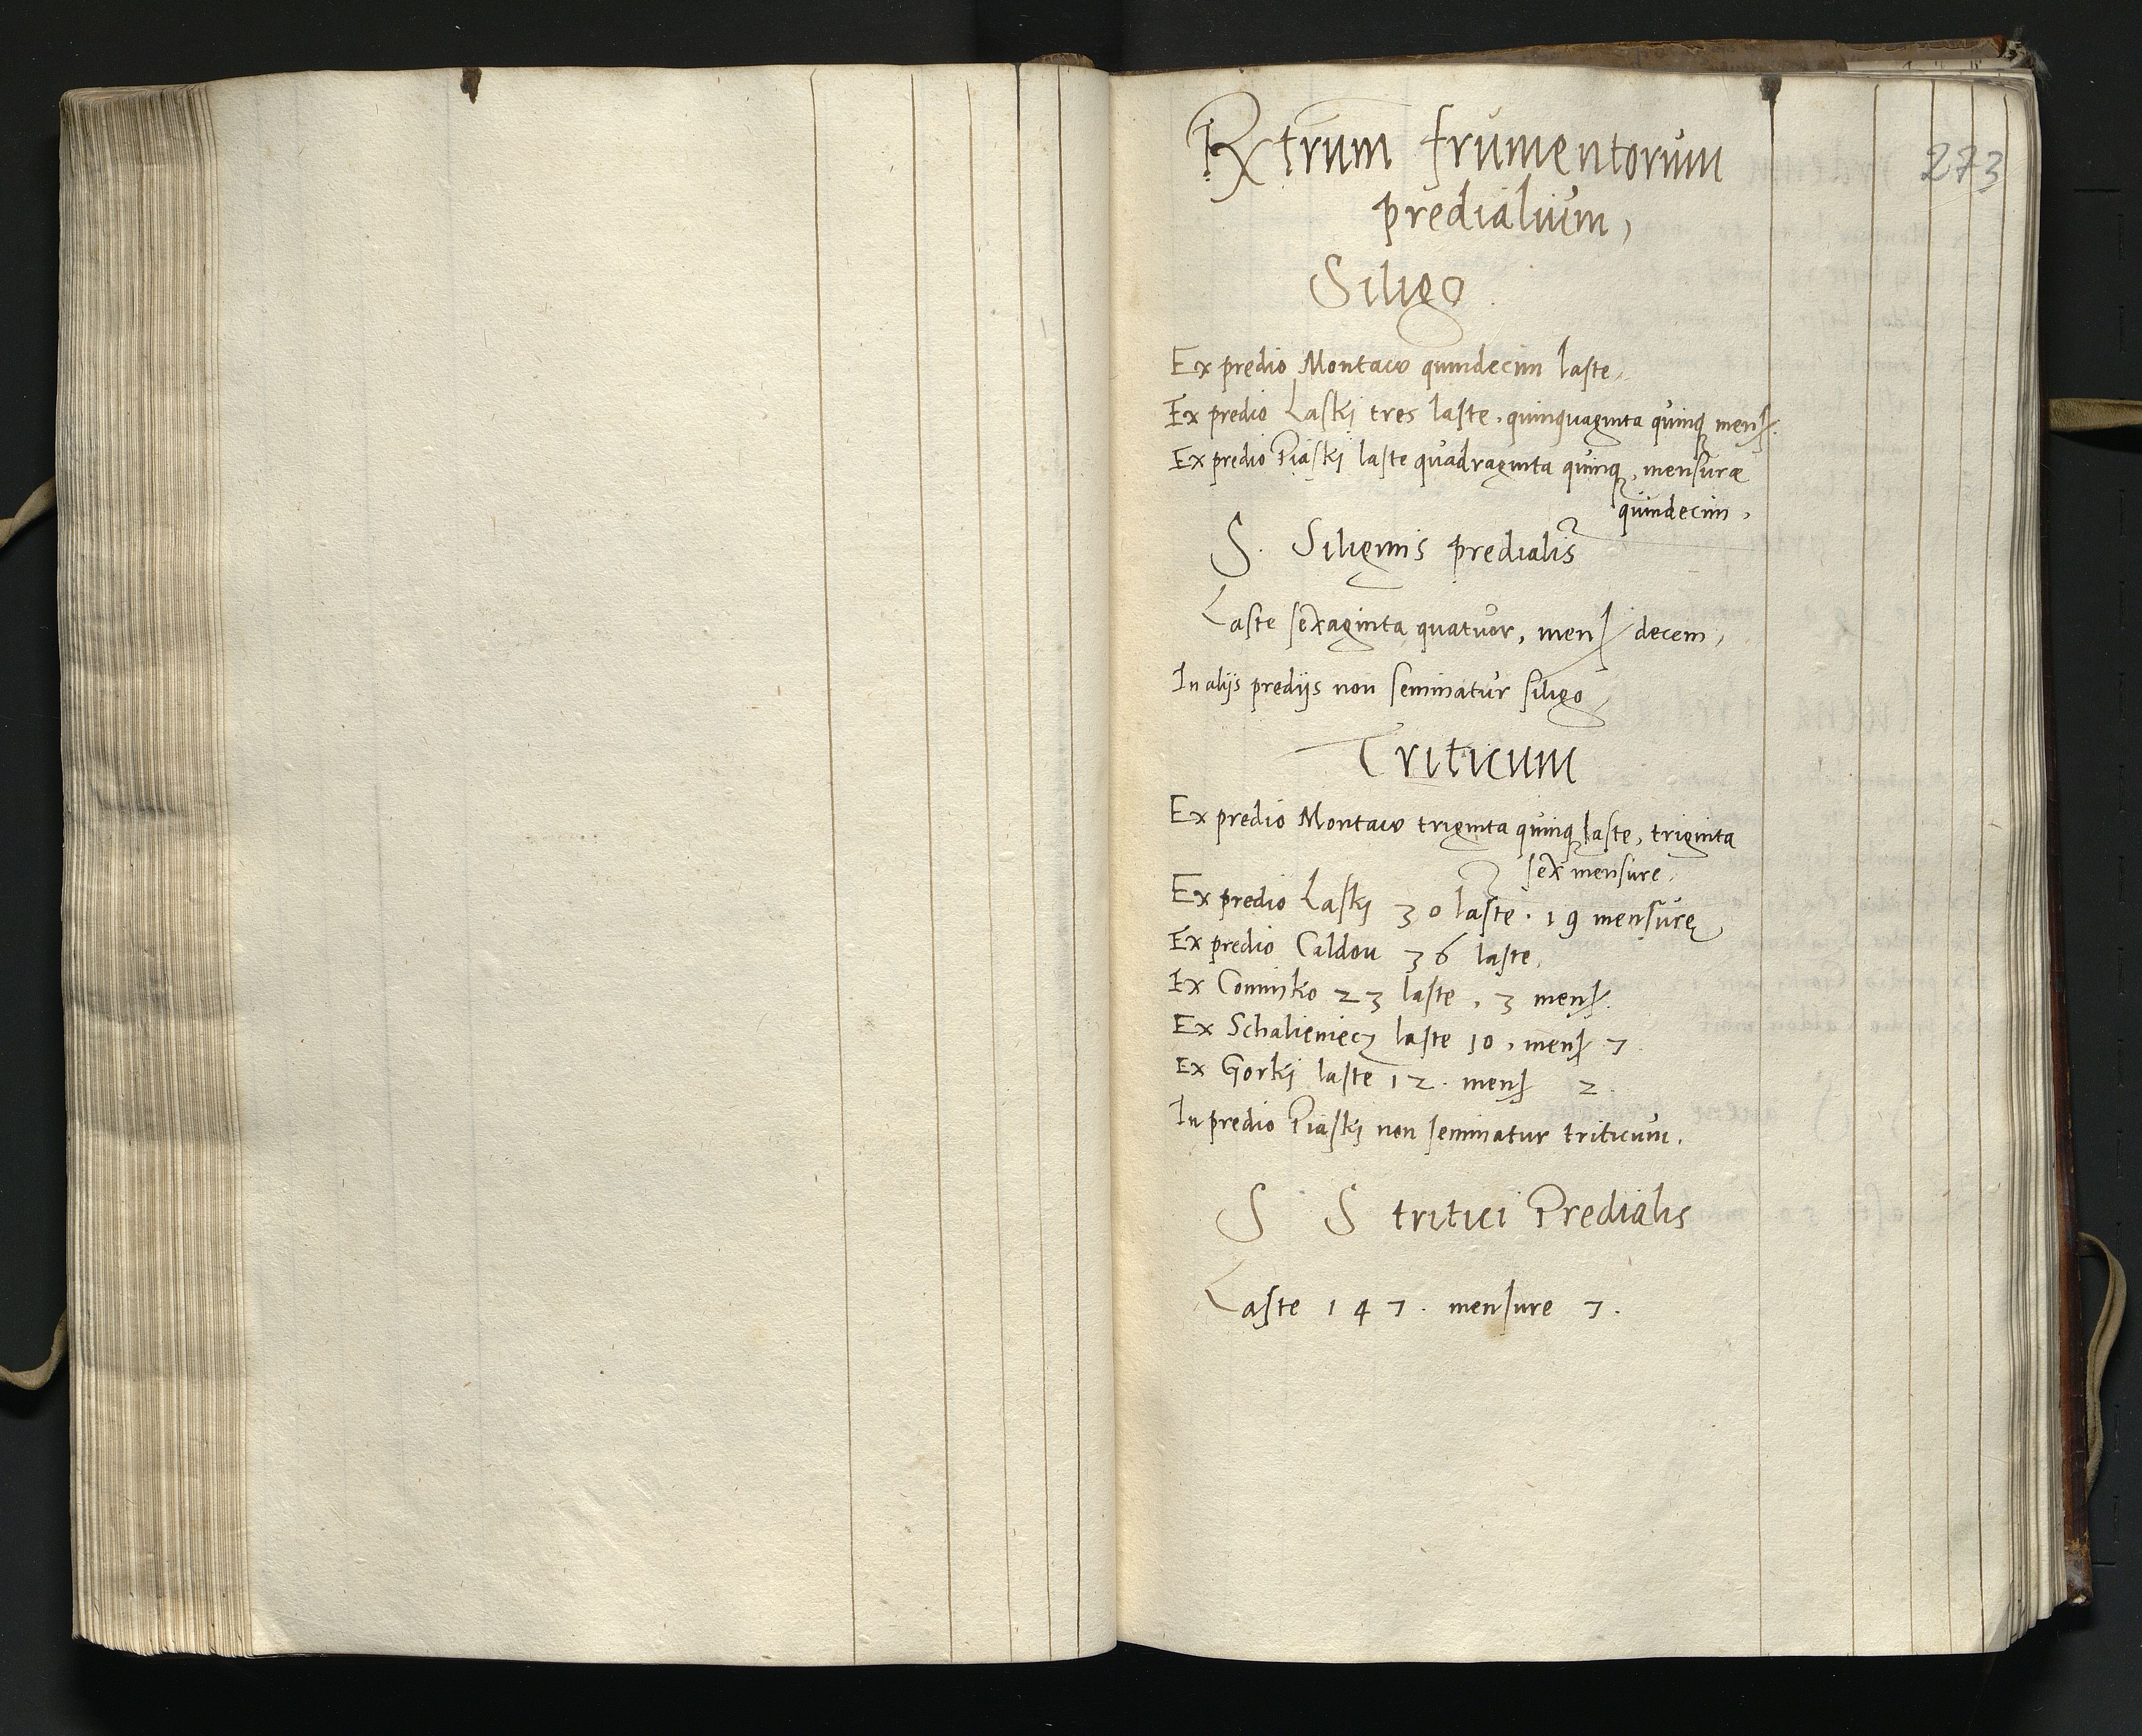 Rxtrum frumentorum
273
predialium,
Siligo.
Ex predio Montaw quindecim laste,
Ex predio Laski tres laste, quinquaginta quinq mens.
Ex predio Piaski laste quadraginta quinq, mensuræ
quindecim,
S. Siliginis predialis
Laste sexaginta quatuor, mens decem,
In alijs predijs non seminatur siligo,
Triticum
Ex predio Montaw triginta quinq laste, triginta
sex mensure,
Ex predio Laski 30 laste. 19 mensure
Ex predio Caldou 36 laste,
Ex Cominko 23 laste, 3 mens.
Ex Schalieniecz laste 10, mens 7
Ex Gorki laste 12. mens 2
In predio Piaski non seminatur triticum.
S S tritici Predialis
Laste 147. mensure 7.